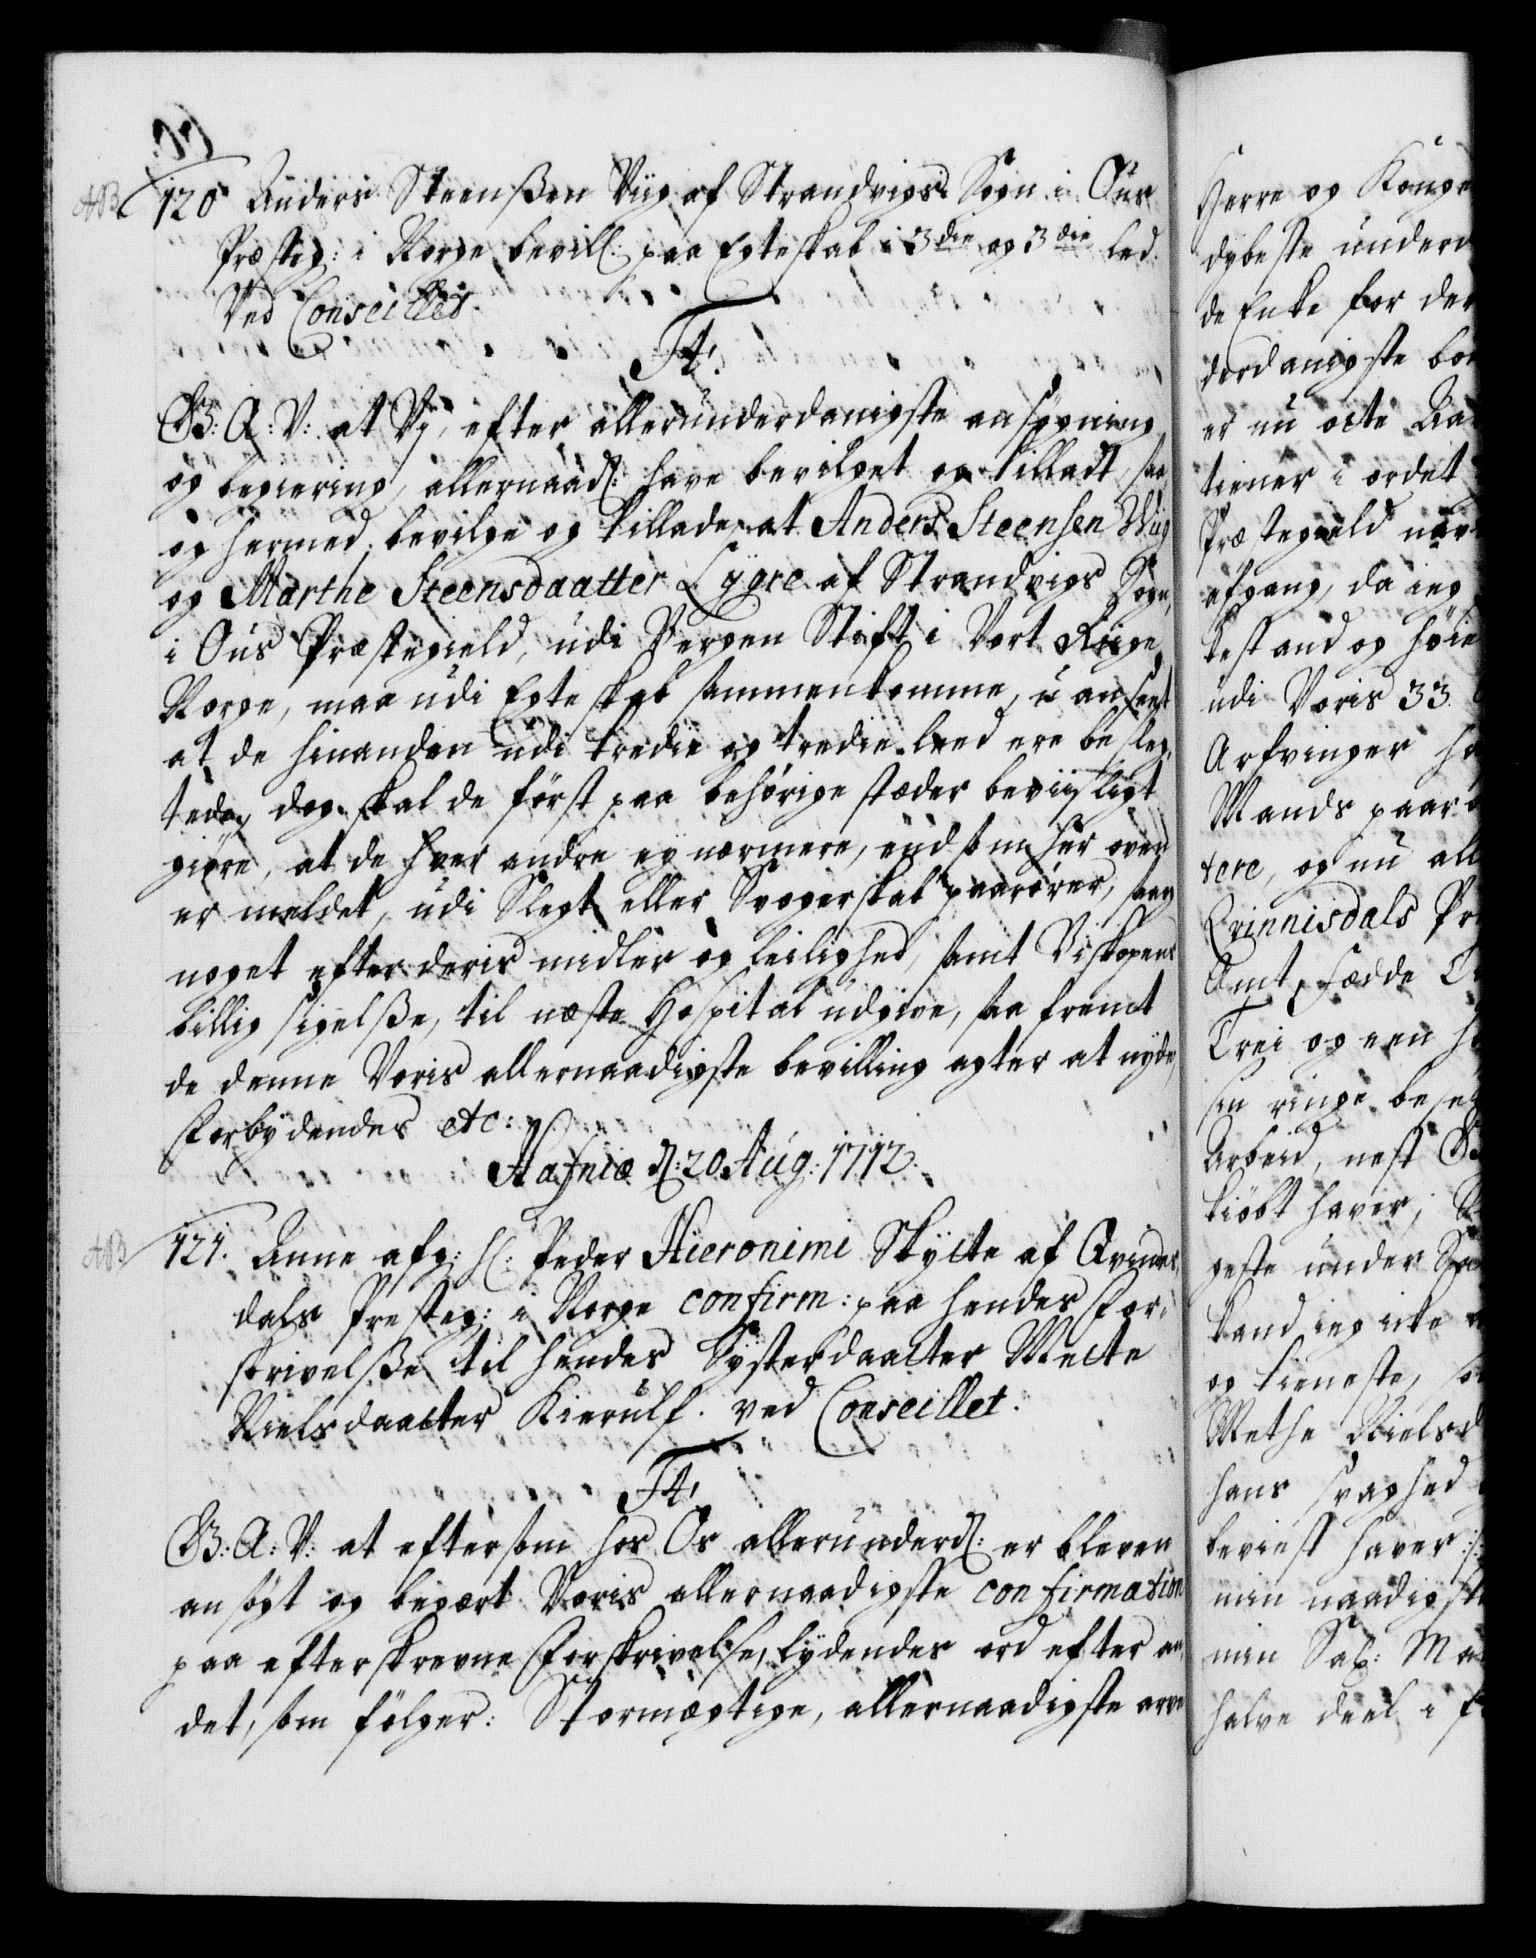 AB
120 Anders Steenßen Viig af Strandvigs Sogn i Ous
Præsteg: i Norge bevill: paa Egteskab i 3die og 3die led.
Ved Conseillet.
F4.
G: A: V: at Vj, efter allerunderdanigste ansögning
og begiering, allernaadl: have bevilget og tilladt, saa
og hermed bevilge og tillade, at Anders Steensen Wiig
og Marthe Steensdaatter Lygre af Strandvigs Sogn,
i Ous Præstegield, udi Bergen Stift i Vort Riige
Norge, maa udi Egteskab sammenkomme, uanseet
at de hinanden udi tredie og tredie leed ere besleg,
tede, dog skal de först paa behörige stæder beviisligt
giöre, at de hver andre ey nærmere, end som her oven
er meldet, udi Slegt eller Svogerskab paarörer, saa og
noget efter deris midler og leilighed, samt Biskopens
billig sigelße, til næste Hospital udgive, saa fremt
de denne Voris allernaadigste bevilling agter at nyde,
Forbydendes etc:
Hafniæ d: 20 Aug: 1712.
AB
121. Anne afg: Hl: Peder Hieronimi Skytte af Qvinis,
dals Presteg: i Norge confirm: paa hendes For,
skrivelße til hendes Systerdaatter Mette
Nielsdaatter Kierulf. ved Conseillet.
F4.
G: A: V: at eftersom hos Os allerunderdl: er bleven
ansögt og begært Voris allernaadigste confirmation
paa efterskrevne Forskrivelse, lydendes ord efter an,
det, som fölger: Stormægtige, allernaadigste arve
Herre og Konge
dybeste underd
de Enke for der
derdanigste
er nu otte Aar
tiener i ordet
Præstegield
afgang, da ieg
bestand og höie
udi Voris 33.
Arfvinger
Mands paar
tere, og nu all
Qvinnisdals Pr
Amt, födde
Trei og een
sin ringe
Arbeid, nest
kiöbt haver,
geste under
kand ieg icke
og tieneste,
Methe Nielsd
hans svaghed
beviist haver
min naadigste
min Sal: Ma
halve deel i